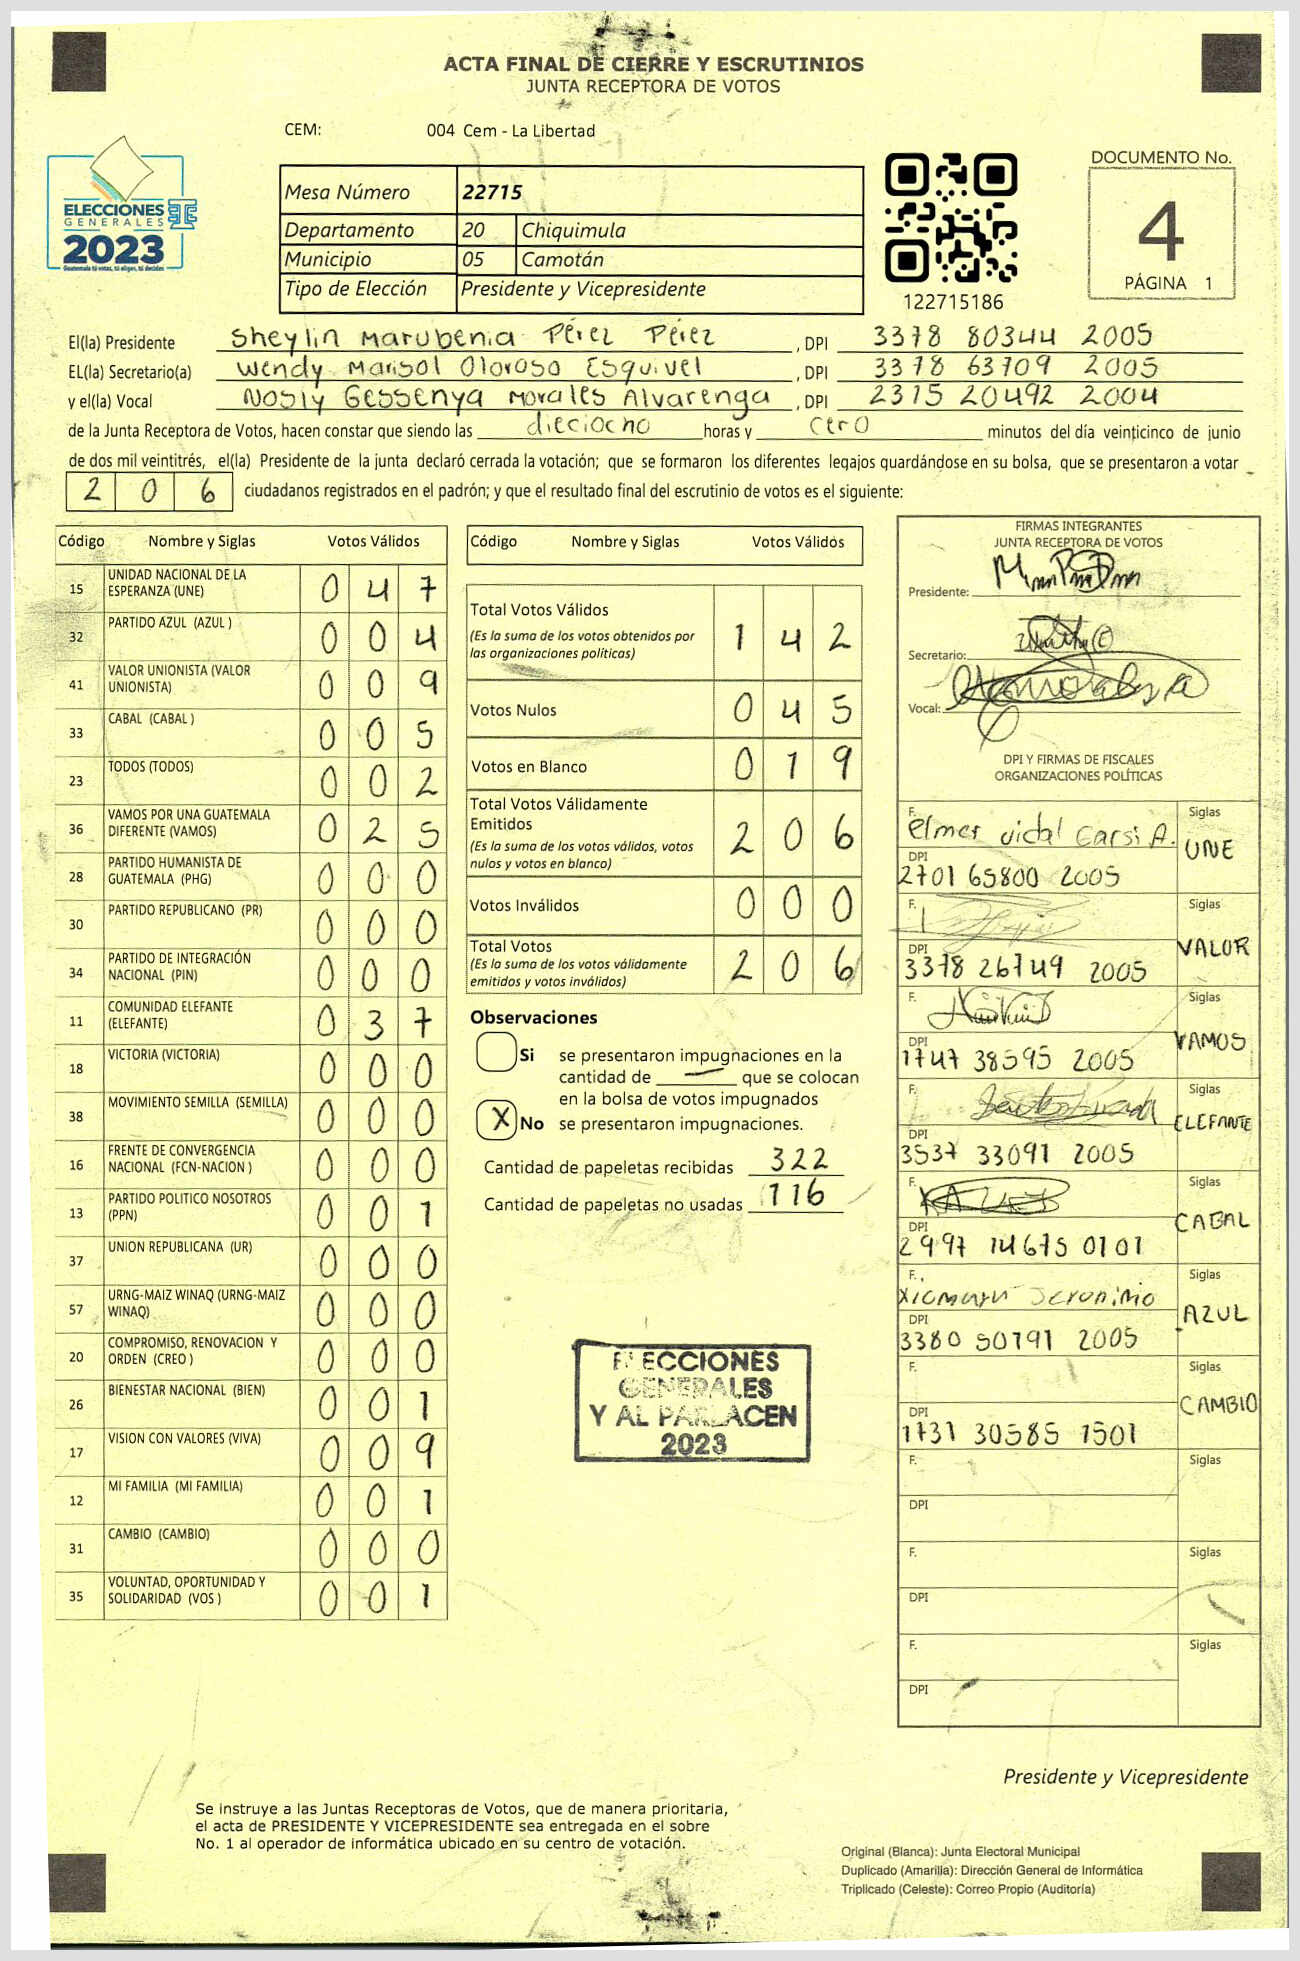 ACTA FINAL DE CIERRE Y ESCRUTINIOS
JUNTA RECEPTORA DE VOTOS
CEM: 004 Cem - La Libertad
ELECCIONES
GENERALES
2023
Guatemala tú votas, tú eliges, tú decides
Mesa Número 22715
Departamento 20 Chiquimula
Municipio 05 Camotán
Tipo de Elección Presidente y Vicepresidente
122715186
DOCUMENTO No.
4
PÁGINA 1
El(la) Presidente Sheylin Marubenia Pérez Pérez , DPI 3378 80344 2005
EL(la) Secretario(a) Wendy Marisol Oloroso Esquivel , DPI 3378 63709 2005
y el(la) Vocal Nosly Gessenya Morales Alvarenga , DPI 2315 20492 2004
de la Junta Receptora de Votos, hacen constar que siendo las dieciocho horas y cero minutos del día veinticinco de junio
de dos mil veintitrés, el(la) Presidente de la junta declaró cerrada la votación; que se formaron los diferentes legajos guardándose en su bolsa, que se presentaron a votar
2 0 6 ciudadanos registrados en el padrón; y que el resultado final del escrutinio de votos es el siguiente:
Código Nombre y Siglas Votos Válidos
15 UNIDAD NACIONAL DE LA
ESPERANZA (UNE) 0 4 7
32 PARTIDO AZUL (AZUL ) 0 0 4
41 VALOR UNIONISTA (VALOR
UNIONISTA) 0 0 9
33 CABAL (CABAL ) 0 0 5
23 TODOS (TODOS) 0 0 2
36 VAMOS POR UNA GUATEMALA
DIFERENTE (VAMOS) 0 2 5
28 PARTIDO HUMANISTA DE
GUATEMALA (PHG) 0 0 0
30 PARTIDO REPUBLICANO (PR) 0 0 0
34 PARTIDO DE INTEGRACIÓN
NACIONAL (PIN) 0 0 0
11 COMUNIDAD ELEFANTE
(ELEFANTE) 0 3 7
18 VICTORIA (VICTORIA) 0 0 0
38 MOVIMIENTO SEMILLA (SEMILLA) 0 0 0
16 FRENTE DE CONVERGENCIA
NACIONAL (FCN-NACION ) 0 0 0
13 PARTIDO POLITICO NOSOTROS
(PPN) 0 0 1
37 UNION REPUBLICANA (UR) 0 0 0
57 URNG-MAIZ WINAQ (URNG-MAIZ
WINAQ) 0 0 0
20 COMPROMISO, RENOVACION Y
ORDEN (CREO ) 0 0 0
26 BIENESTAR NACIONAL (BIEN) 0 0 1
17 VISION CON VALORES (VIVA) 0 0 9
12 MI FAMILIA (MI FAMILIA) 0 0 1
31 CAMBIO (CAMBIO) 0 0 0
35 VOLUNTAD, OPORTUNIDAD Y
SOLIDARIDAD (VOS ) 0 0 1
Código Nombre y Siglas Votos Válidos
Total Votos Válidos
(Es la suma de los votos obtenidos por
las organizaciones políticas) 1 4 2
Votos Nulos 0 4 5
Votos en Blanco 0 1 9
Total Votos Válidamente
Emitidos
(Es la suma de los votos válidos, votos
nulos y votos en blanco) 2 0 6
Votos Inválidos 0 0 0
Total Votos
(Es la suma de los votos válidamente
emitidos y votos inválidos) 2 0 6
Observaciones
Si se presentaron impugnaciones en la
cantidad de — que se colocan
en la bolsa de votos impugnados
X No se presentaron impugnaciones.
Cantidad de papeletas recibidas 322
Cantidad de papeletas no usadas 116
ELECCIONES
GENERALES
Y AL PARLACEN
2023
FIRMAS INTEGRANTES
JUNTA RECEPTORA DE VOTOS
Presidente:
Secretario:
Vocal:
DPI Y FIRMAS DE FISCALES
ORGANIZACIONES POLÍTICAS
F. Elmer Vidal Garsi A. Siglas
UNE
DPI
2701 65800 2005
F. Siglas
VALOR
DPI
3378 26749 2005
F. Siglas
VAMOS
DPI
1747 38595 2005
F. Siglas
ELEFANTE
DPI
3537 33091 2005
F. Siglas
CABAL
DPI
2997 14675 0101
F. Jeronimo Siglas
AZUL
DPI
3380 50791 2005
F. Siglas
CAMBIO
DPI
1731 30585 1501
F. Siglas
DPI
F. Siglas
DPI
F. Siglas
DPI
Presidente y Vicepresidente
Se instruye a las Juntas Receptoras de Votos, que de manera prioritaria,
el acta de PRESIDENTE Y VICEPRESIDENTE sea entregada en el sobre
No. 1 al operador de informática ubicado en su centro de votación.
Original (Blanca): Junta Electoral Municipal
Duplicado (Amarilla): Dirección General de Informática
Triplicado (Celeste): Correo Propio (Auditoría)